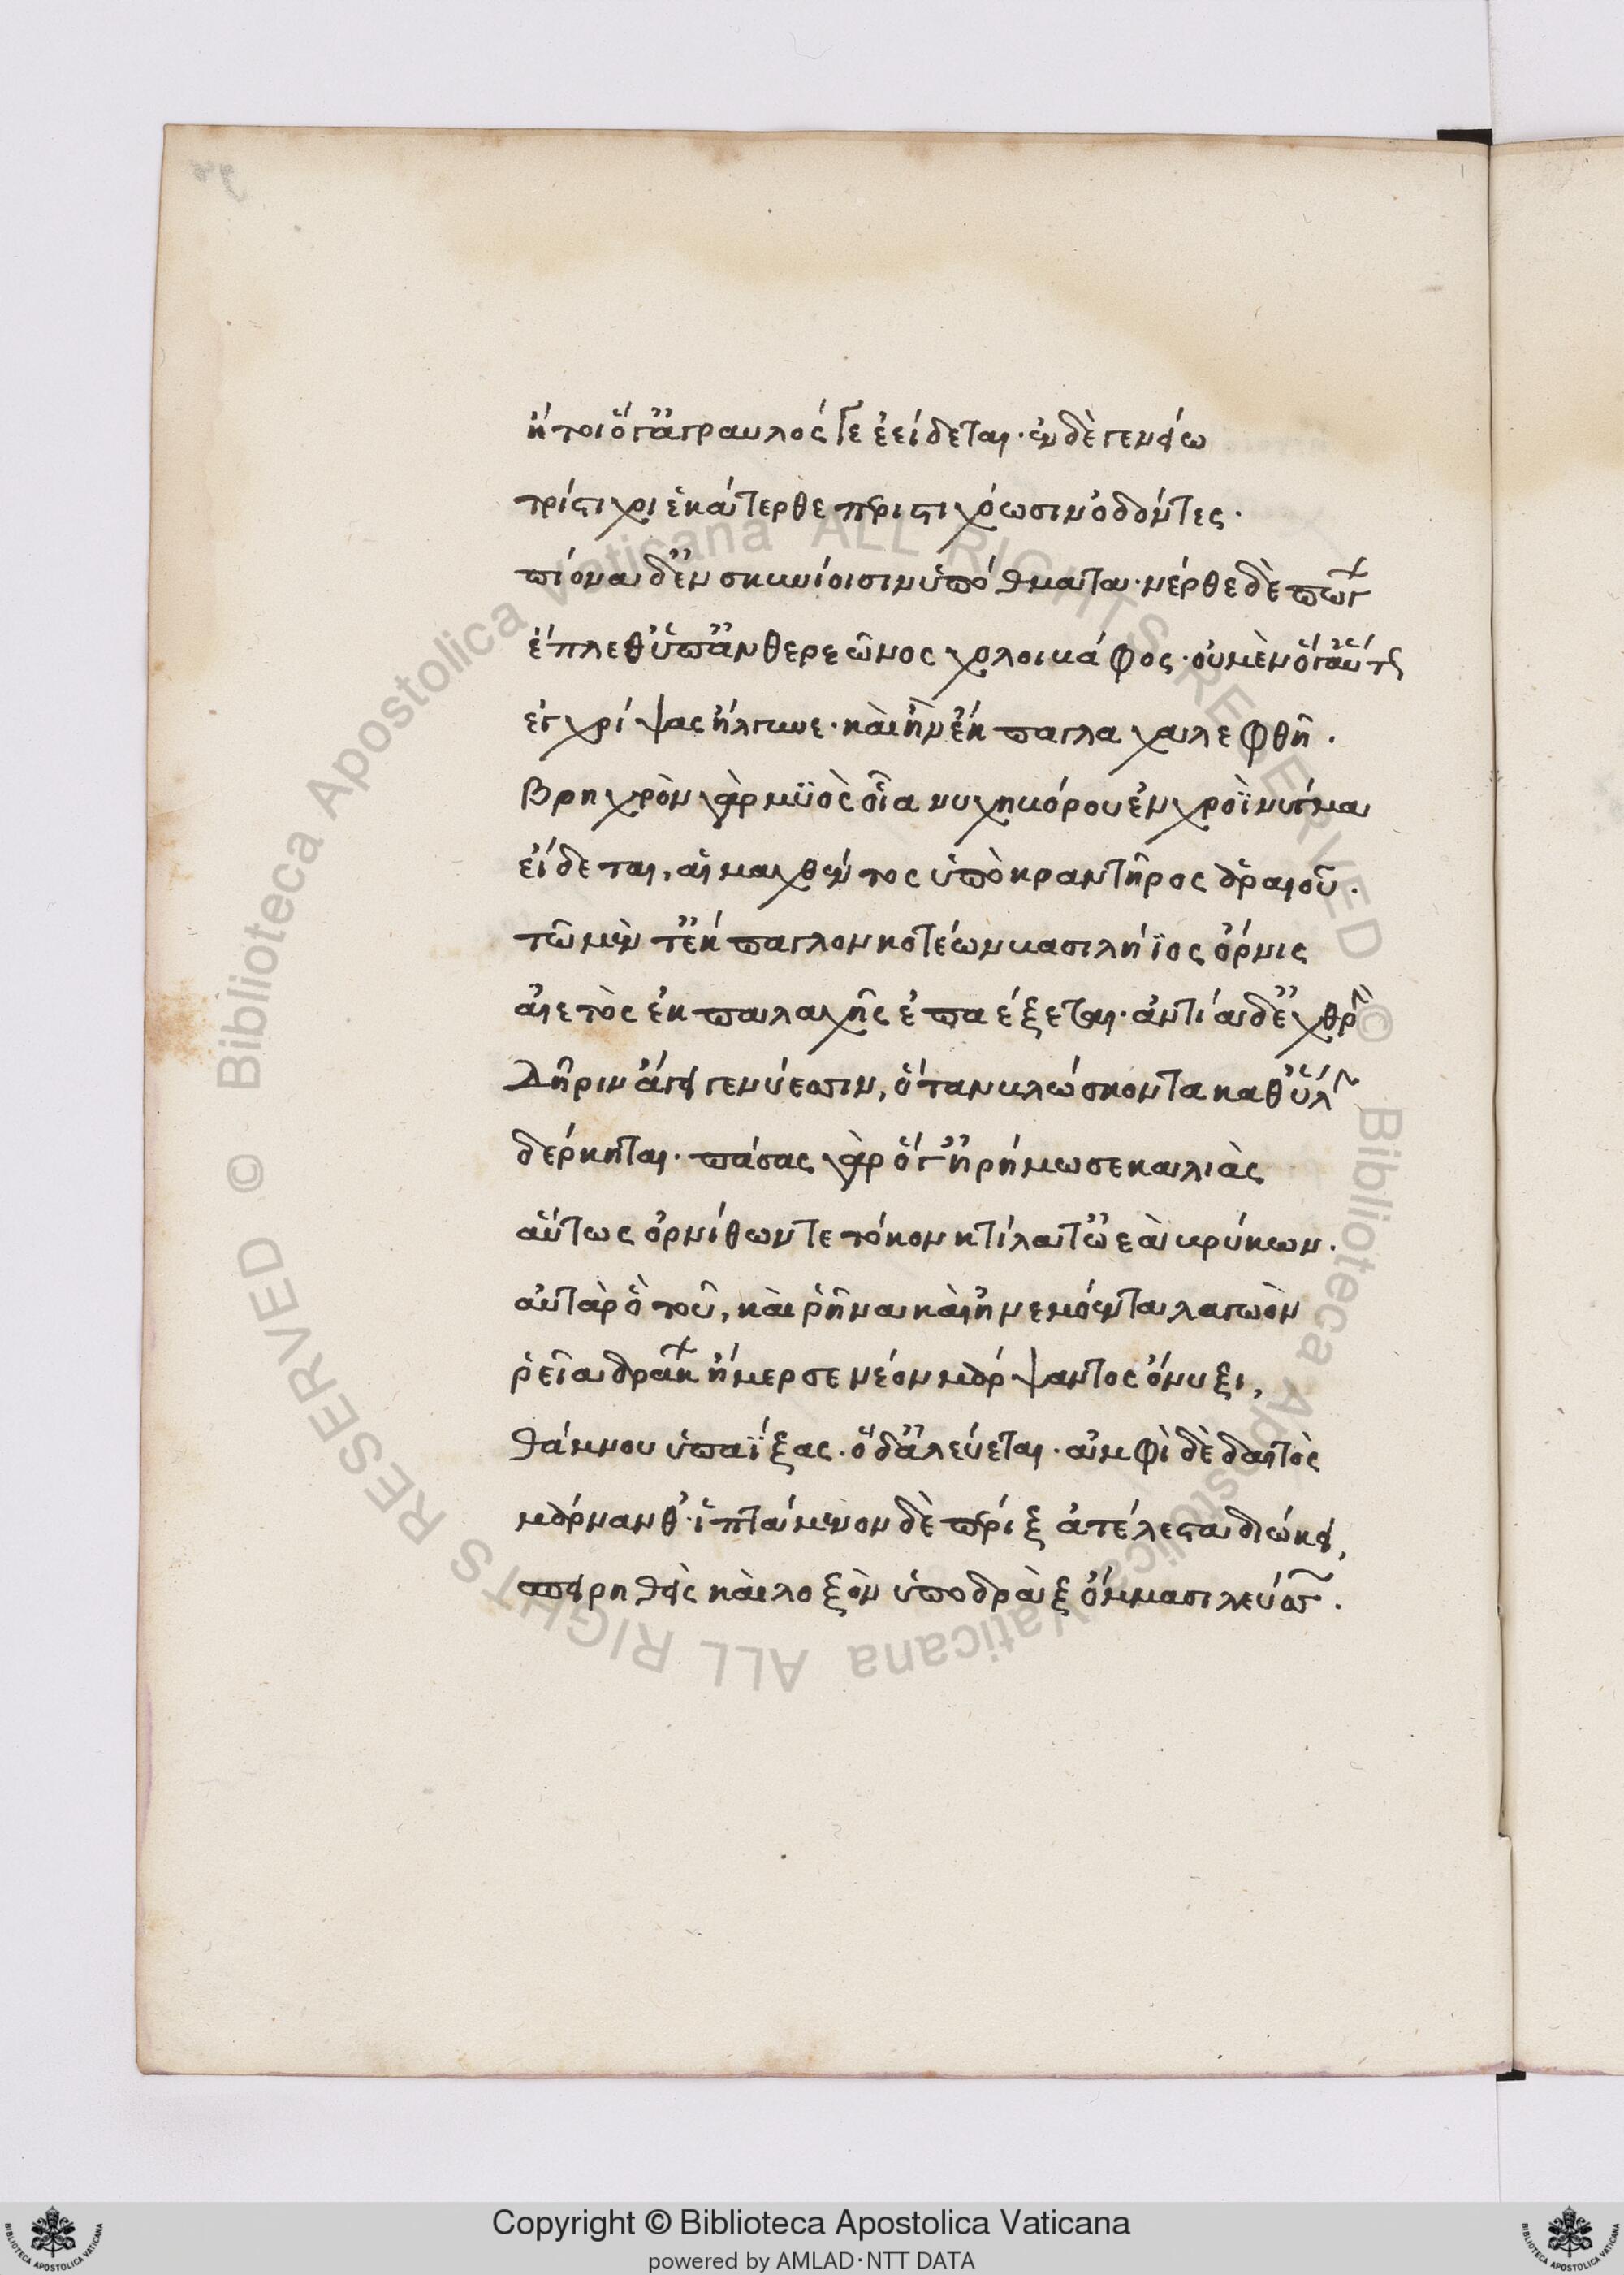 ἤτοι ὅγ' ἄγραυλός γε ἐείδεται· ἐν δὲ γενείω
τρίστιχοι ἑκάτερθε περιστιχόωσιν ὀδόντες·
πίονα δ' ἐν σκυνίοισιν ὑπό θματα· νέρθε δὲ πώγ
ἔπλεθ' ὑπ' ἀνθερεῶνος χολοιβάφος· οὐ μὲν ὅγ' αὔτως
ἐγχρίψας ἤλγυνε· καὶ ἢν ἔκπαγλα χαλεφθῆ.
βρηχρὸν γὰρ μϋὸς οἷα νυχηβόρου ἐν χροῒ νύγμα
εἴδεται, αἱμαχθέντος ὑπὸ κραντῆρος ἀραιοῦ.
τῶ μέν τ' ἔκπαγλον κοτέων βασιλήϊος ὄρνις
αἰετὸς ἐκ παλαχῆς ἐπαέξεται· ἀντία δ' ἐχθρὴν
δῆριν ἄγει γενύεσσιν, ὅταν βλώσκοντα καθ' ὕλην
δέρκηται· πάσας γὰρ ὅγ' ἠρήμωσε καλιὰς
αὔτως ὀρνίθων τε τόκον κτίλα τ' ὤεα βρύκων.
αὐτὰρ ὁ τοῦ, καὶ ῥῆνα καὶ ἠνεμόεντα λαγωὸν
ῥεῖα δράκων ἤμερσε νέον μάρψαντος ὄνυξι,
θάμνου ὑπαΐξας. ὁ δ' ἀλεύεται· ἀμφὶ δὲ δαιτὸς
μάρνανθ'· ἱπτάμενον δὲ πέριξ ἀτέλεστα διώκει,
σπειρηθεὶς καὶ λοξὸν ὑποδρὰξ ὄμμασι λεύσσων.
Copyright © Biblioteca Apostolica Vaticana
powered by AMLAD·NTT DATA